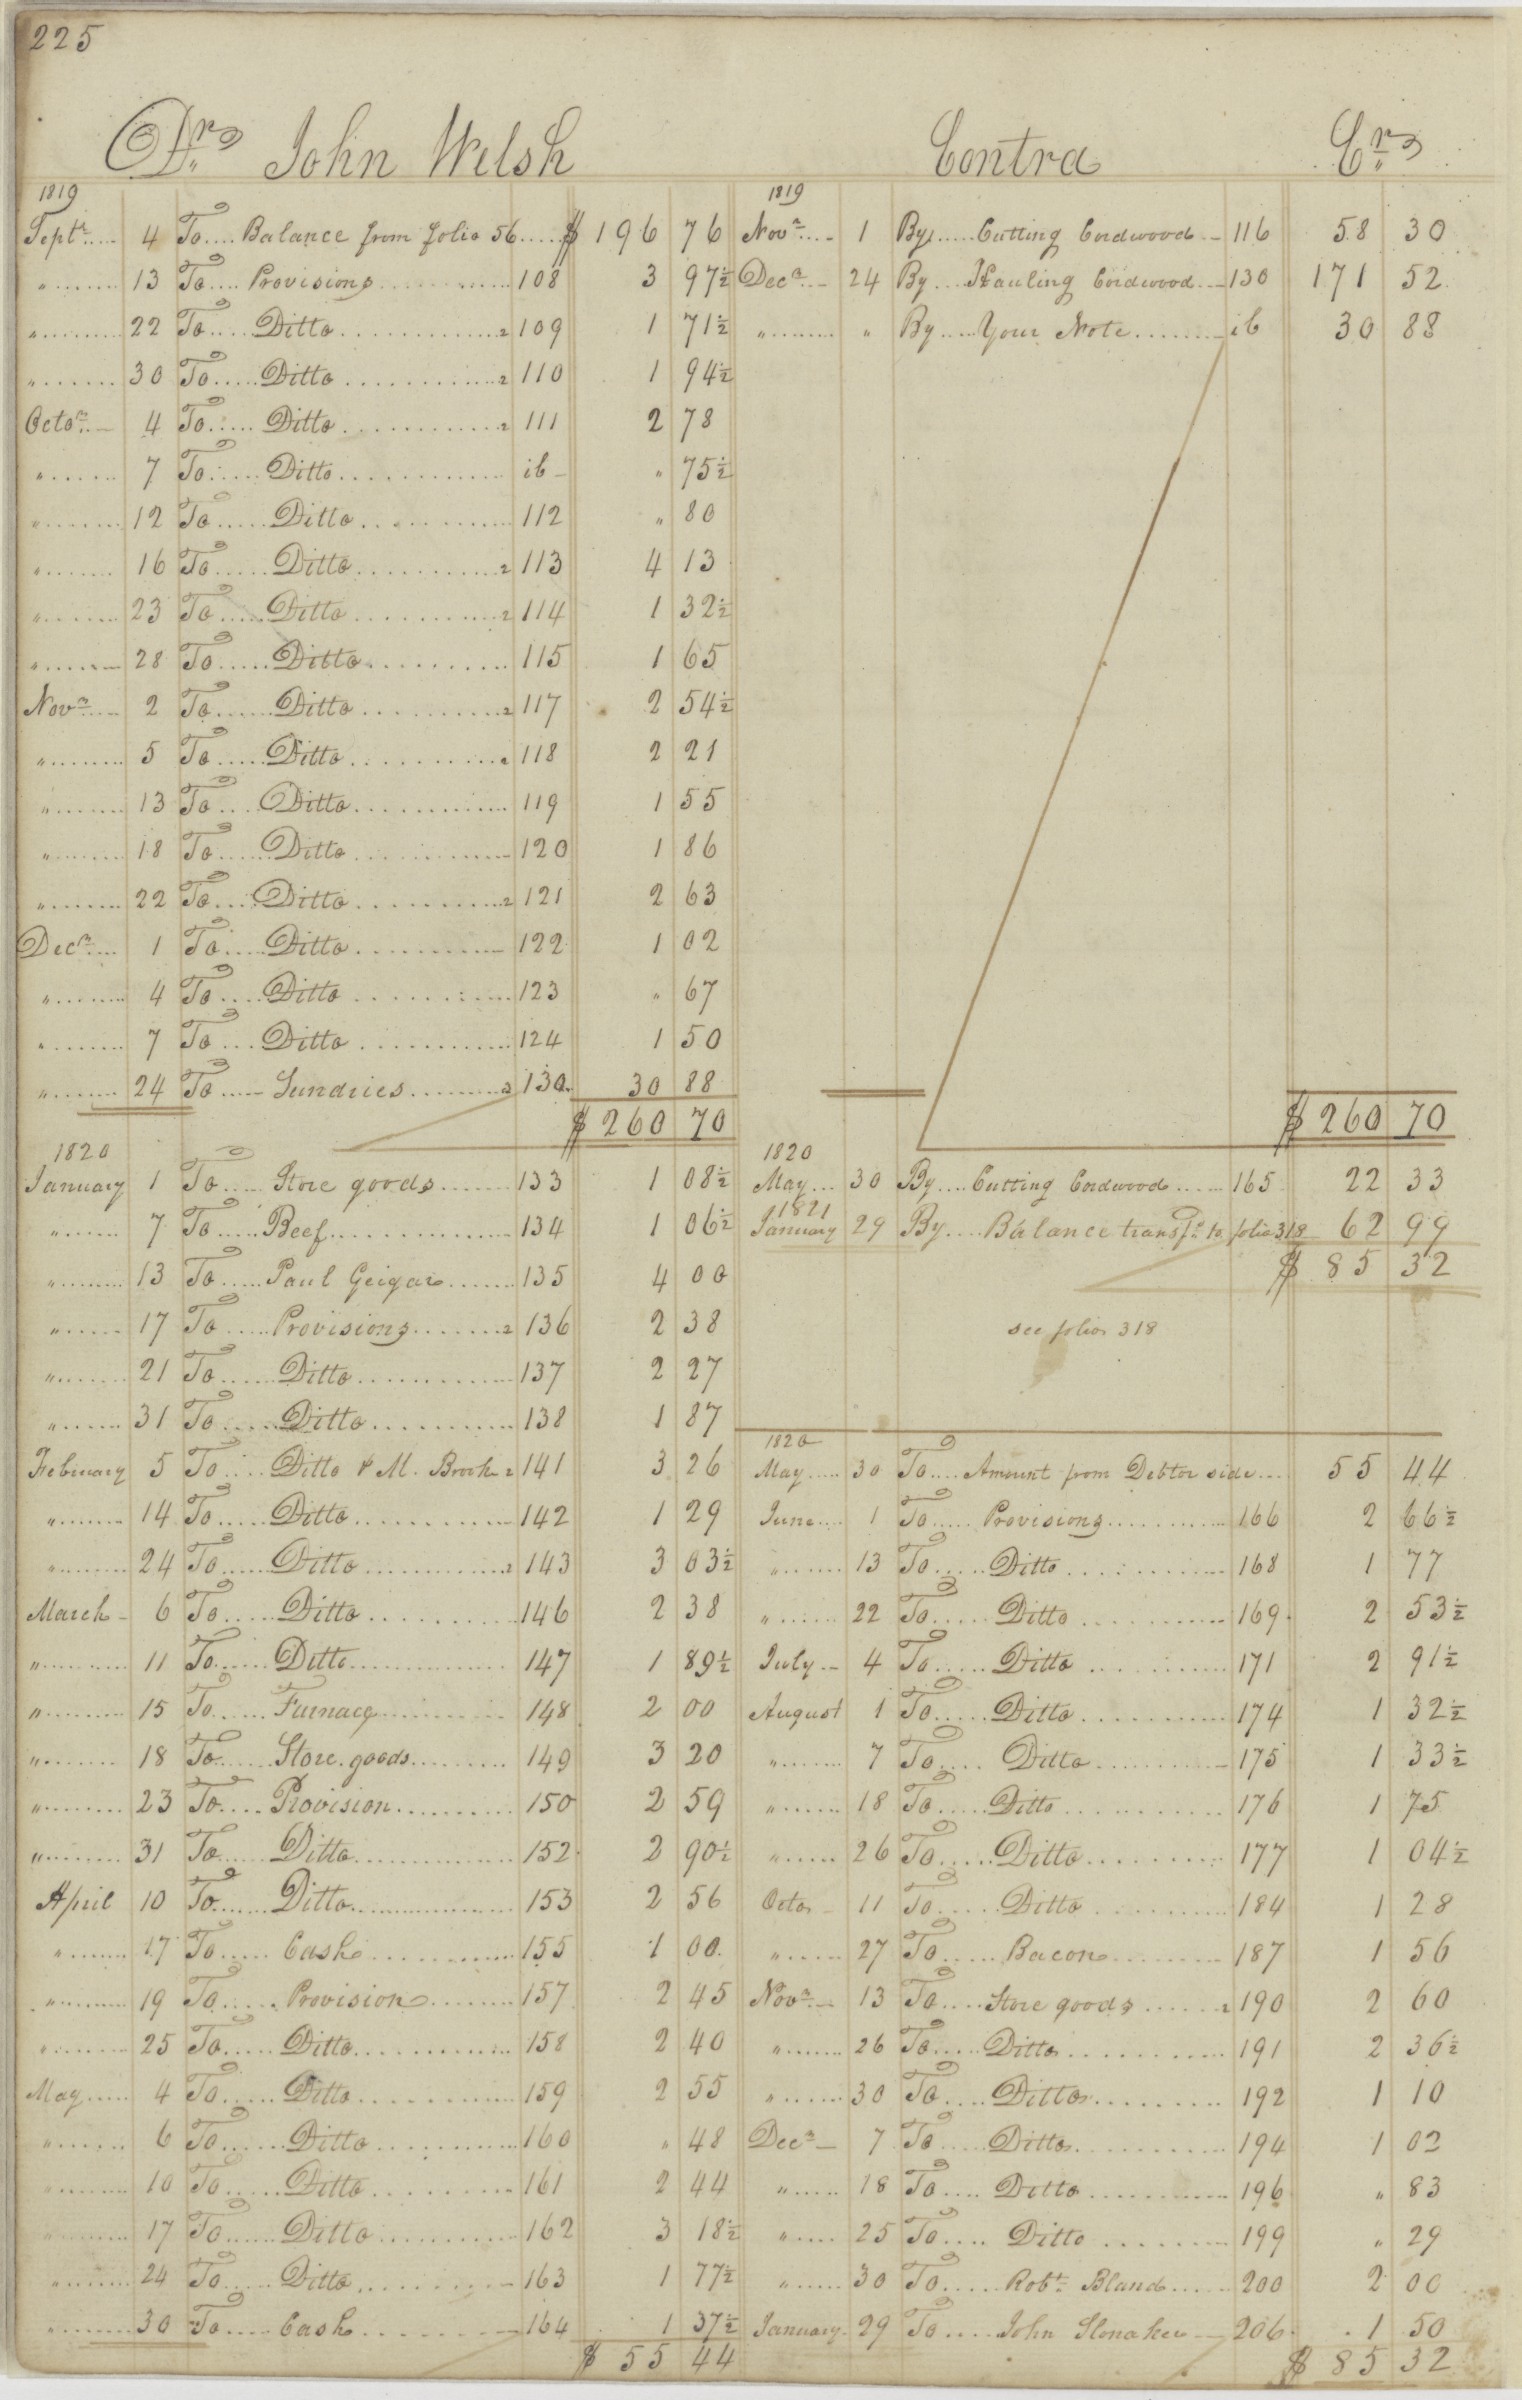 225
Dr. John Welsh
1819
Septr. 4 To.... Balance from folio 56..... $ 196 76
" 13 To.... Provisions 108 3 97½
" 22 To.... Ditto 109 1 71½
" 30 To.... Ditto 110 1 94½
Octor. 4 To.... Ditto 111 2 78
" 7 To.... Ditto ib " 75½
" 12 To.... Ditto 112 " 80
" 16 To.... Ditto 113 4 13
" 23 To.... Ditto 114 1 32½
" 28 To.... Ditto 115 1 65
Novr. 2 To.... Ditto 117 2 54½
" 5 To.... Ditto 118 2 21
" 13 To.... Ditto 119 1 55
" 18 To.... Ditto 120 1 86
" 22 To.... Ditto 121 2 63
Decr. 1 To.... Ditto 122 1 02
" 4 To.... Ditto 123 " 67
" 7 To.... Ditto 124 1 50
" 24 To.... Sundries 130 30 88
$ 260 70
1820
January 1 To.... Store goods 133 1 08½
" 7 To.... Beef 134 1 06½
" 13 To.... Paul Geigar 135 4 00
" 17 To.... Provisions 136 2 38
" 21 To.... Ditto 137 2 27
" 31 To.... Ditto 138 1 87
February 5 To.... Ditto & M. Brook 141 3 26
" 14 To.... Ditto 142 1 29
" 24 To.... Ditto 143 3 03½
March 6 To.... Ditto 146 2 38
" 11 To.... Ditto 147 1 89½
" 15 To.... Furnace 148 2 00
" 18 To.... Store goods 149 3 20
" 23 To.... Provision 150 2 59
" 31 To.... Ditto 152 2 90½
April 10 To.... Ditto 153 2 56
" 17 To.... Cash 155 1 00
" 19 To.... Provision 157 2 45
" 25 To.... Ditto 158 2 40
May 4 To.... Ditto 159 2 55
" 6 To.... Ditto 160 " 48
" 10 To.... Ditto 161 2 44
" 17 To.... Ditto 162 3 18½
" 24 To.... Ditto 163 1 77½
" 30 To.... Cash 164 1 37½
$ 55 44
Contra Cr.
1819
Novr. 1 By.... Cutting Cordwood 116 58 30
Decr. 24 By.... Hauling Cordwood 130 171 52
" " By.... Your Note ib 30 88
$ 260 70
1820
May 30 By.... Cutting Cordwood 165 22 33
1821
January 29 By.... Balance transfd. to folio 318 62 99
$ 85 32
see folio 318
1820
May 30 To.... Amount from Debtor side 55 44
June 1 To.... Provisions 166 2 66½
" 13 To.... Ditto 168 1 77
" 22 To.... Ditto 169 2 53½
July 4 To.... Ditto 171 2 91½
August 1 To.... Ditto 174 1 32½
" 7 To.... Ditto 175 1 33½
" 18 To.... Ditto 176 1 75
" 26 To.... Ditto 177 1 04½
Octor 11 To.... Ditto 184 1 28
" 27 To.... Bacon 187 1 56
Novr. 13 To.... Store goods 190 2 60
" 26 To.... Ditto 191 2 36½
" 30 To.... Ditto 192 1 10
Decr. 7 To.... Ditto 194 1 02
" 18 To.... Ditto 196 " 83
" 25 To.... Ditto 199 " 29
" 30 To.... Robt. Bland 200 2 00
January 29 To.... John Slonaker 206 1 50
$ 85 32